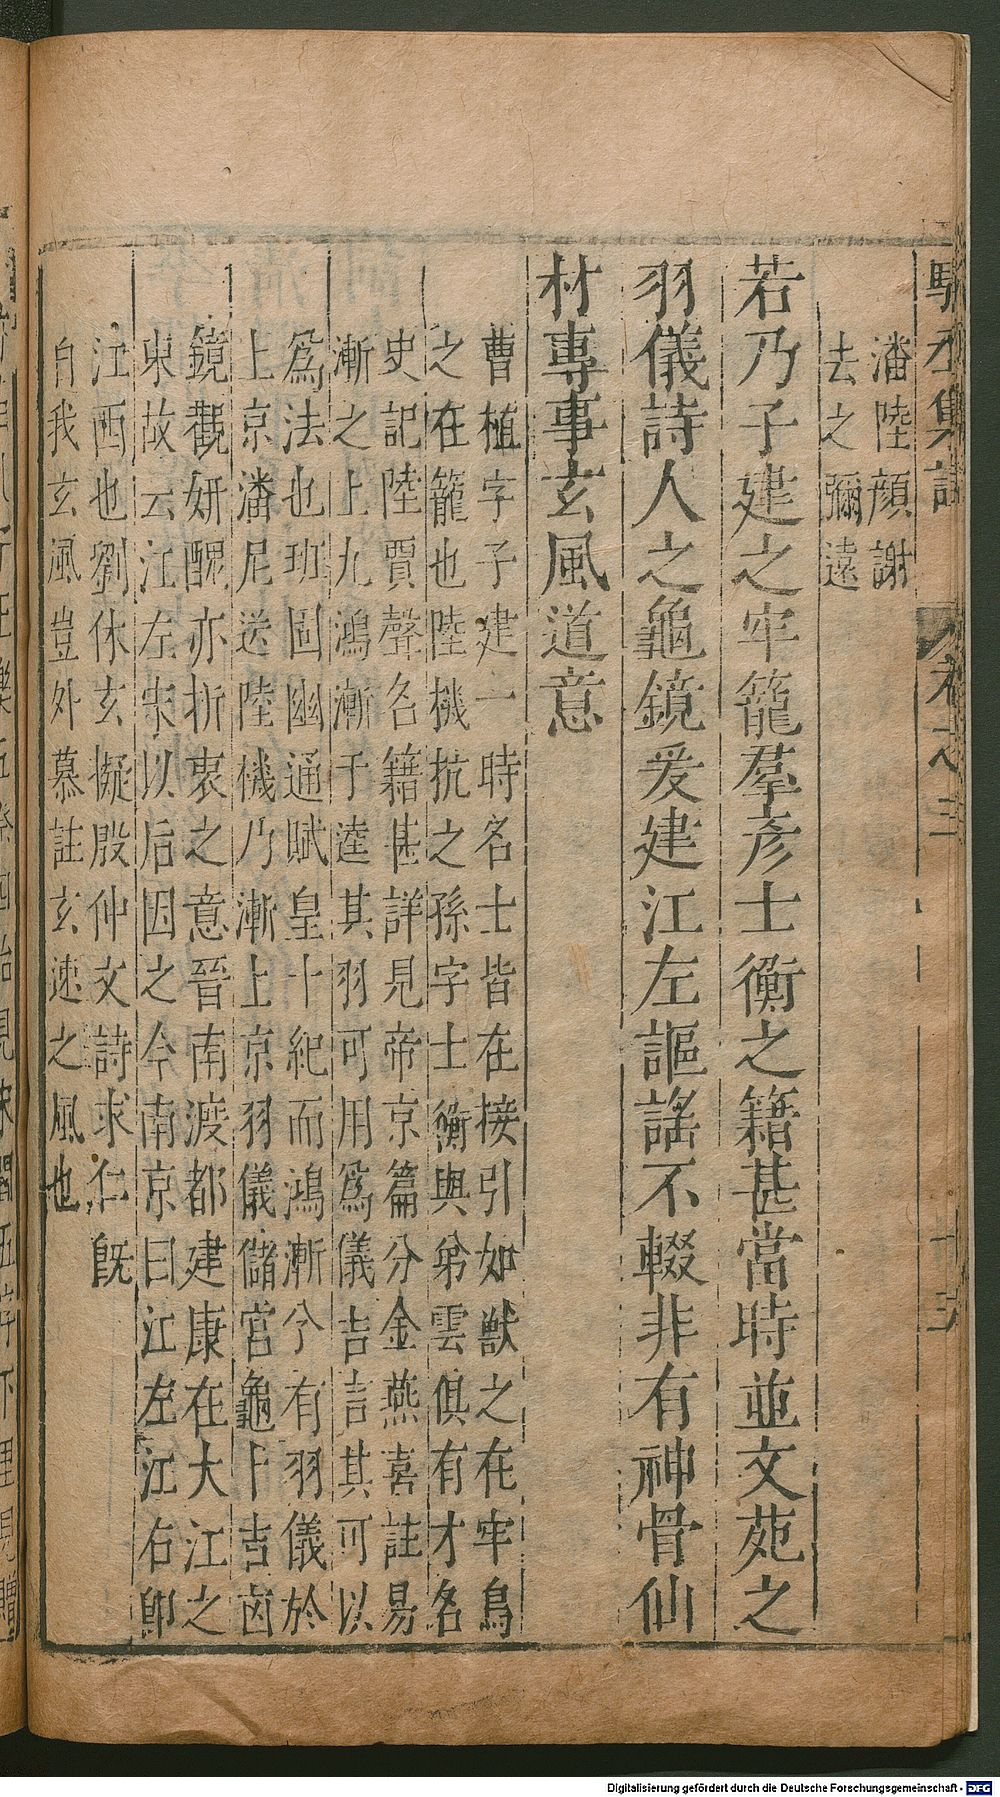 駱丞集註 卷之三 十五
潘陸顏謝
去之彌遠
若乃子建之牢籠羣彥士衡之籍甚當時並文苑之
羽儀詩人之龜鏡爰建江左謳謠不輟非有神骨仙
材專事玄風道意
曹植字子建一時名士皆在接引如獸之在牢鳥
之在籠也陸機抗之孫字士衡與弟雲俱有才名
史記陸賈聲名籍甚詳見帝京篇分金燕喜註易
漸之上九鴻漸于逵其羽可用爲儀吉言其可以
爲法也班固幽通賦皇十紀而鴻漸兮有羽儀於
上京潘尼送陸機乃漸上京羽儀儲宮龜卜吉凶
鏡觀妍醜亦折衷之意晉南渡都建康在大江之
東故云江左宋以后因之今南京曰江左江右卽
江西也劉休玄擬殷仲文詩求仁旣
自我玄風豈外慕註玄速之風也
Digitalisierung gefördert durch die Deutsche Forschungsgemeinschaft - DFG